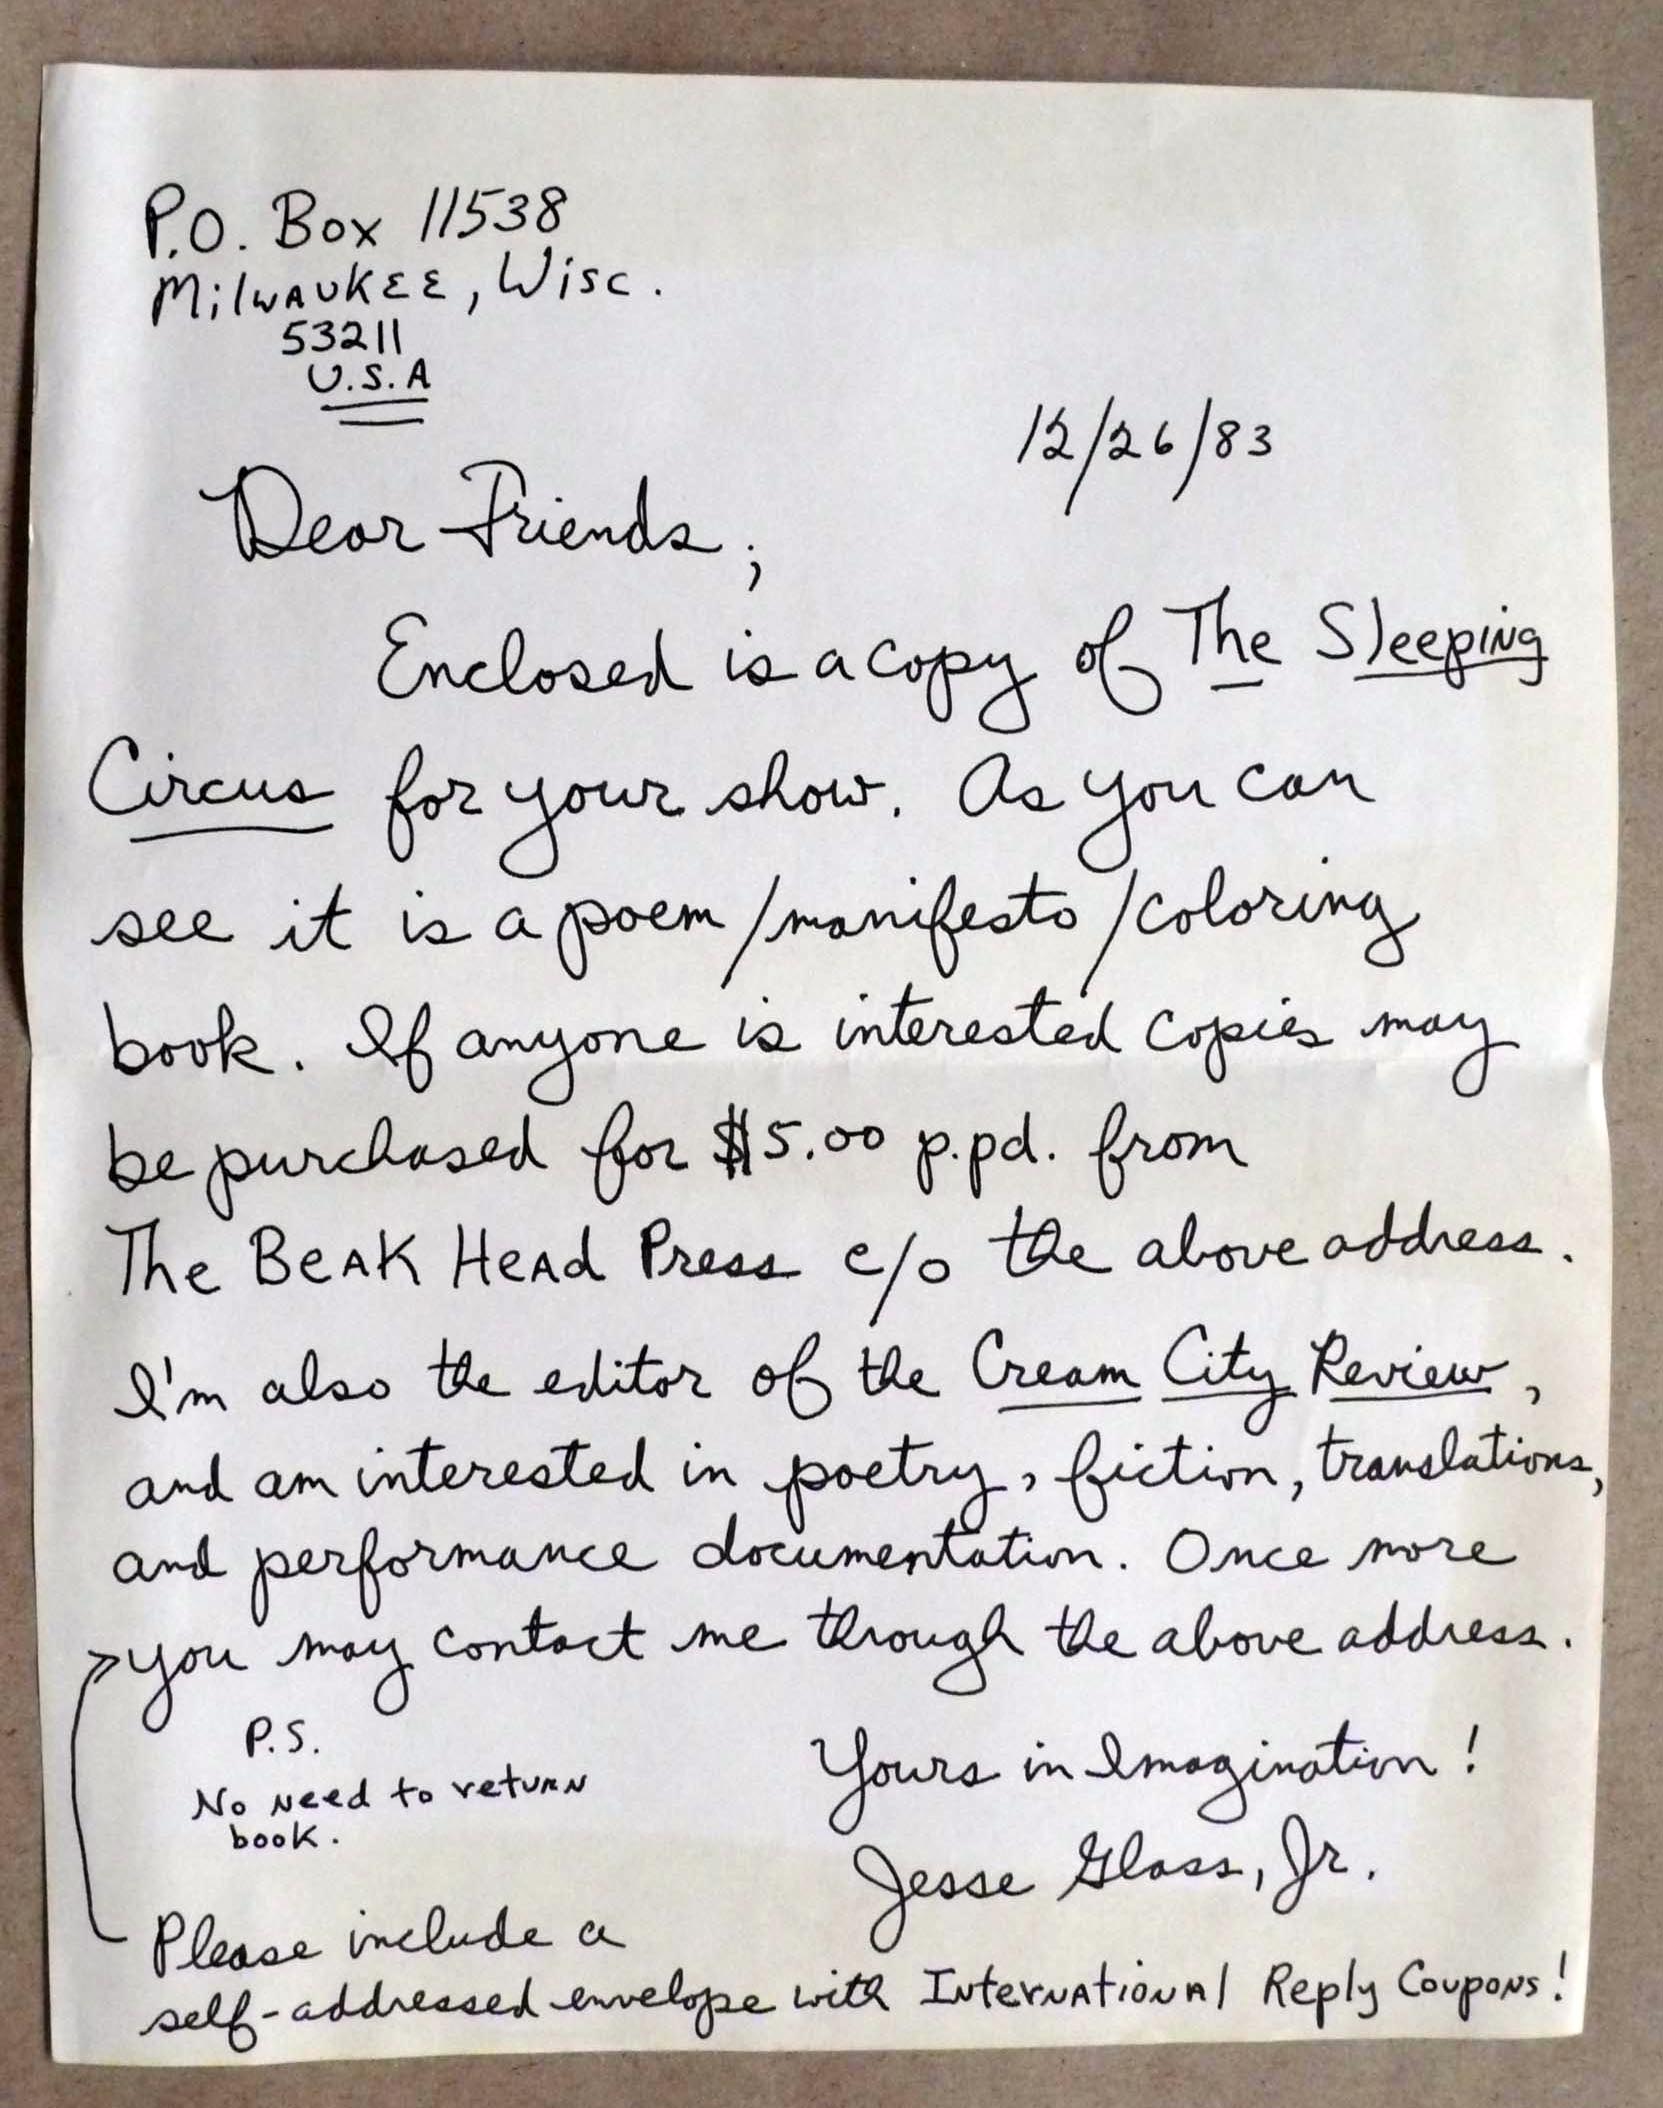 P.O. Box 11538
Milwaukee, Wisc.
53211
U.S.A
12/26/83
Dear Friends;
Enclosed is a copy of The Sleeping
Circus for your show. As you can
see it is a poem/manifesto/coloring
book. If anyone is interested copies may
be purchased for $5.00 p.pd. from
The Beak Head Press c/o the above address.
I'm also the editor of the Cream City Review,
and am interested in poetry, fiction, translations,
and performance documentation. Once more
you may contact me through the above address.
P.S.
No need to return
book.
Yours in Imagination!
Jesse Glass, Jr.
Please include a
self-addressed envelope with International Reply Coupons!